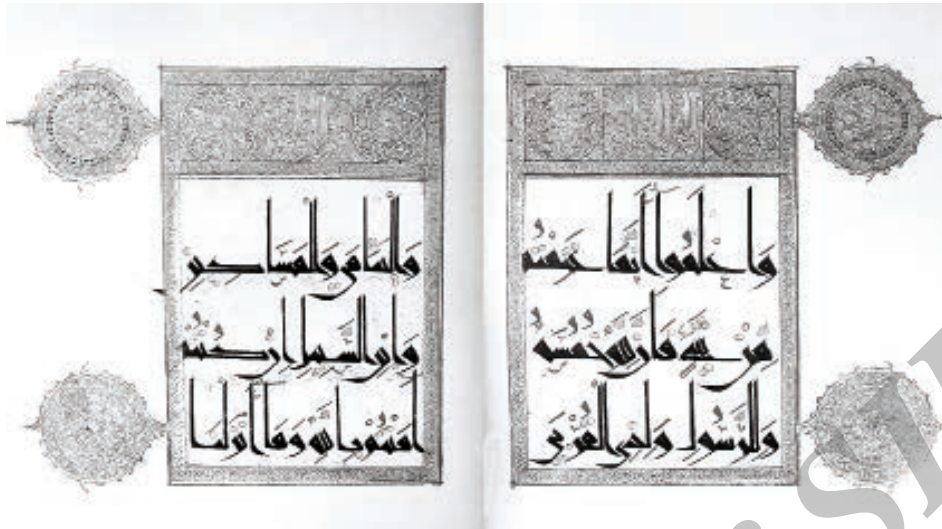 وَاعْلَمُوا أَنَّمَا غَنِمْتُمْ
مِنْ شَيْءٍ فَأَنَّ لِلَّهِ خُمُسَهُ
وَلِلرَّسُولِ وَلِذِي الْقُرْبَى
وَالْيَتَامَى وَالْمَسَاكِينِ
وَابْنِ السَّبِيلِ إِنْ كُنْتُمْ
آمَنْتُمْ بِاللَّهِ وَمَا أَنْزَلْنَا